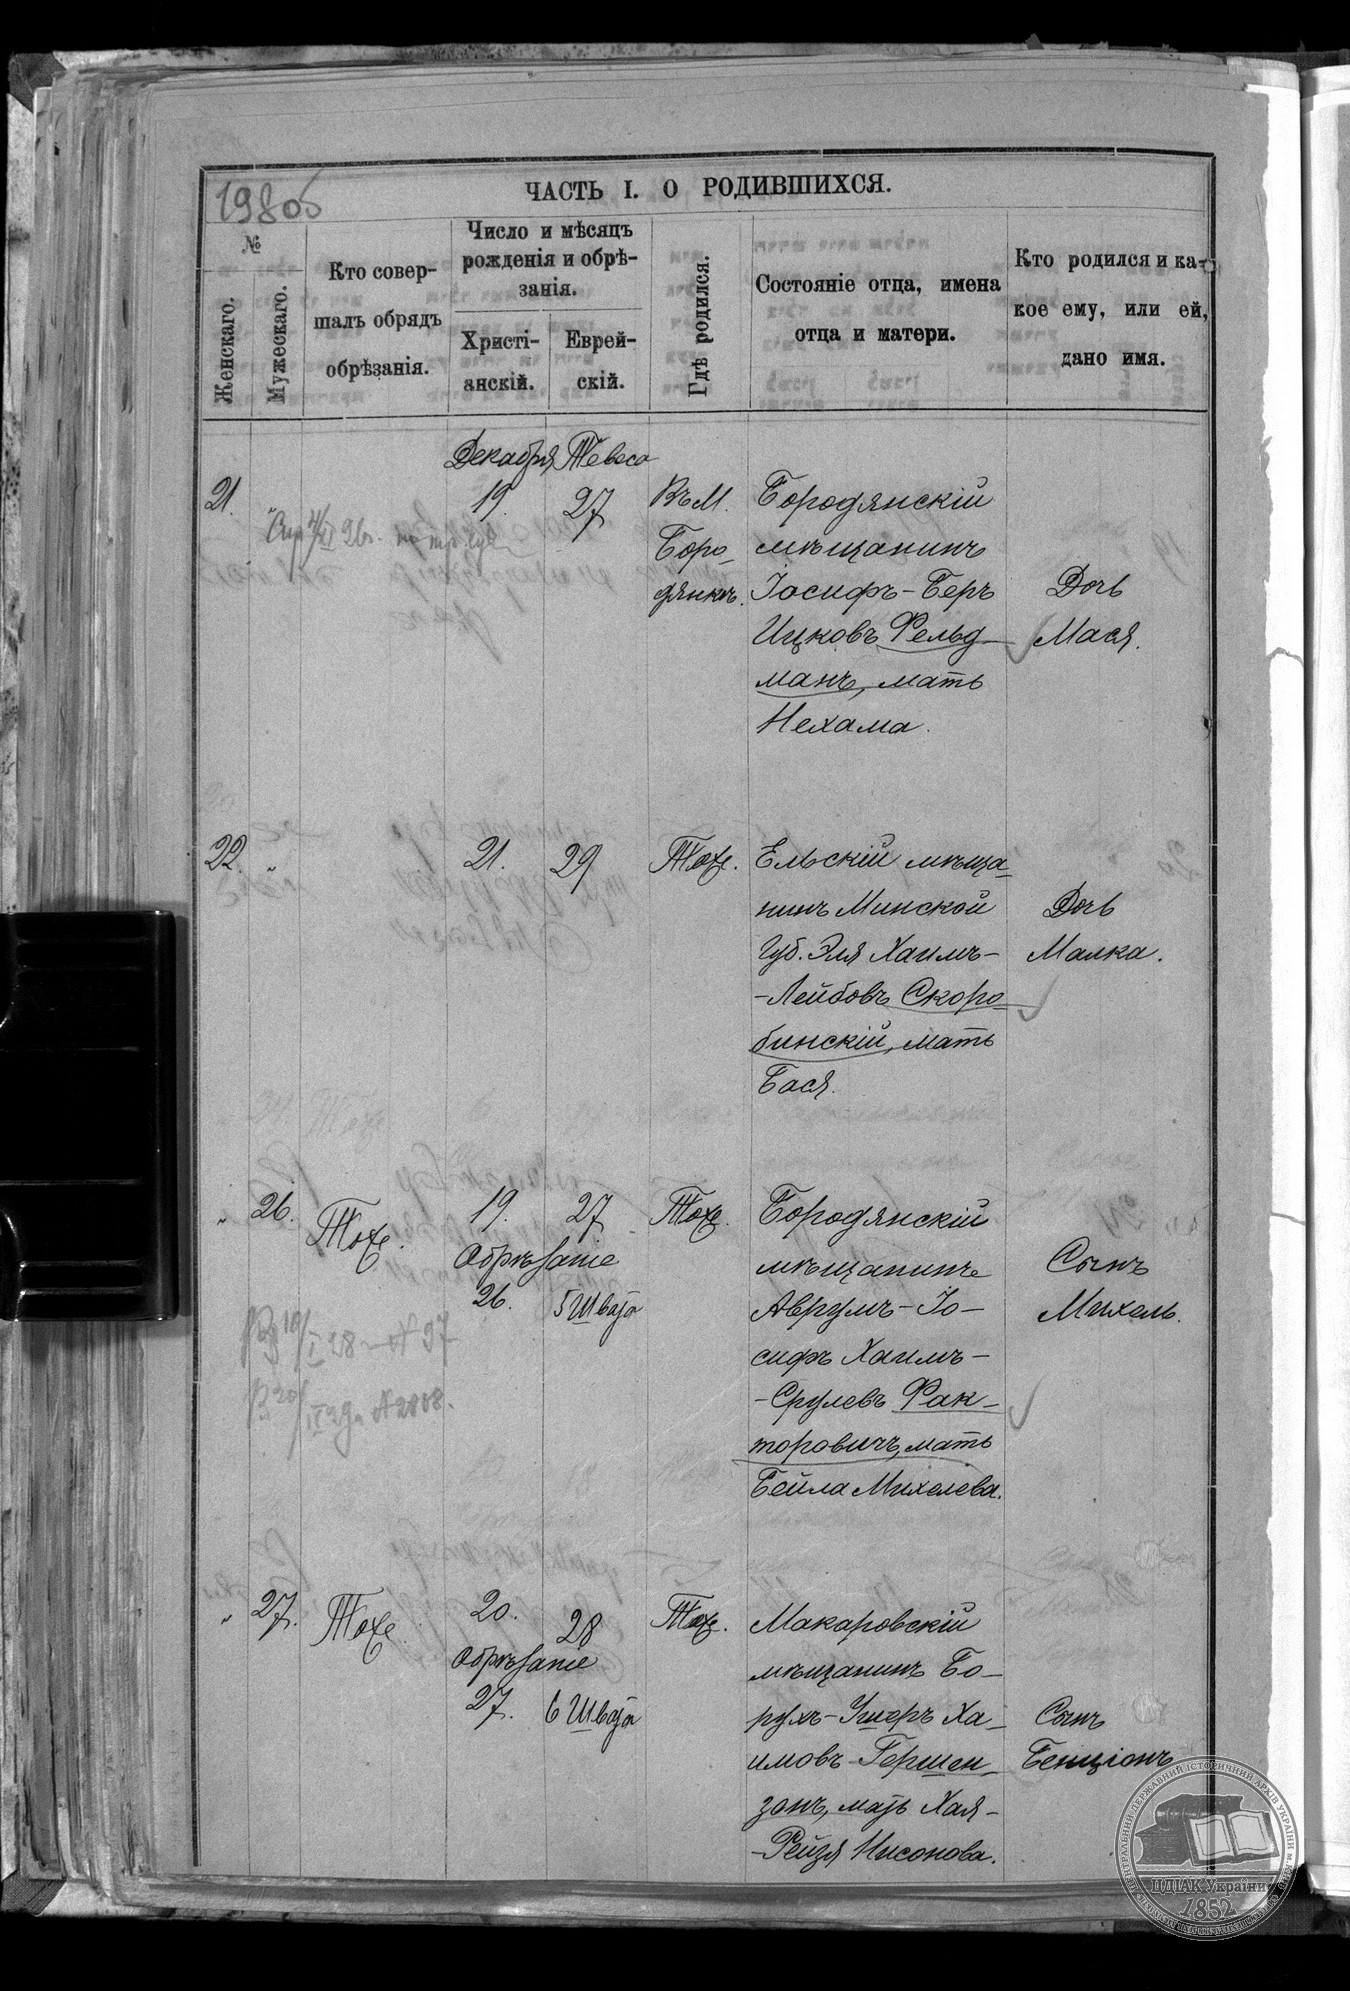 198об
ЧАСТЬ I. О РОДИВШИХСЯ.
№
Женскаго.
Мужескаго.
Кто совер-
шалъ обрядъ
обрѣзанія.
Число и мѣсяцъ
рожденія и обрѣ-
занія.
Христі-
анскій.
Еврей-
скій.
Гдѣ родился.
Состояніе отца, имена
отца и матери.
Кто родился и ка-
кое ему, или ей,
дано имя.
Декабря Тевеса
21. " 19. 27 Въ М.
Боро-
дянкѣ.
Бородянскій
мѣщанинъ
Іосифъ-Беръ
Ицковъ Фельд-
манъ, мать
Нехама.
Дочь
Мася.
22. " 21. 29 Тоже.
Ельскій мѣща-
нинъ Минской
Губ. Эля Хаимъ-
-Лейбовъ Скоро-
бинскій, мать
Бася.
Дочь
Малка.
" 26. Тоже. 19. 27 Тоже.
Обрѣзаніе
26. 5 Швата
Бородянскій
мѣщанинъ
Аврумъ-Іо-
сифъ Хаимъ-
-Срулевъ Фак-
торовичъ, мать
Бейла Михелева.
Сынъ
Михель.
" 27. Тоже. 20. 28 Тоже.
Обрѣзаніе
27. 6 Швата
Макаровскій
мѣщанинъ Бо-
рухъ-Ушеръ Ха-
имовъ Гершен-
зонъ, мать Хая-
-Рейзя Нисонова.
Сынъ
Бенціонъ
ЦЕНТРАЛЬНИЙ ДЕРЖАВНИЙ ІСТОРИЧНИЙ АРХІВ УКРАЇНИ М. КИЇВ
ЦДІАК України
1852